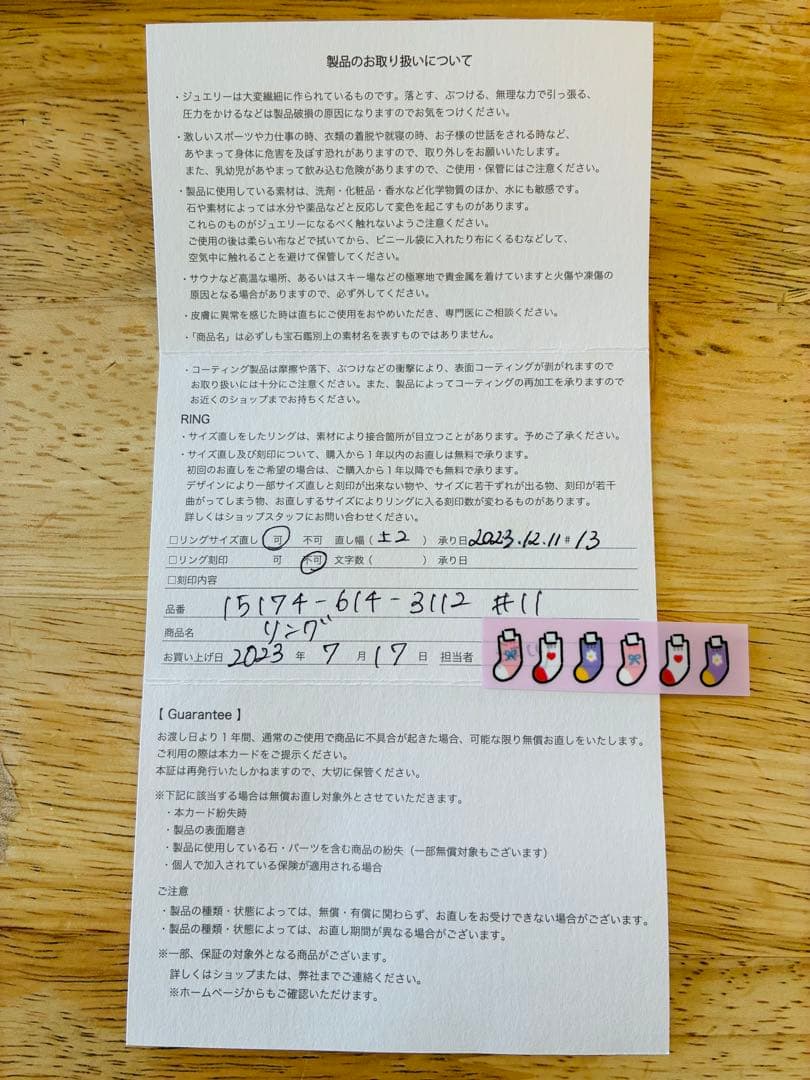 製品のお取り扱いについて
・ジュエリーは大変繊細に作られているものです。落とす、ぶつける、無理な力で引っ張る、
圧力をかけるなどは製品破損の原因になりますのでお気をつけください。
・激しいスポーツや力仕事の時、衣類の着脱や就寝の時、お子様の世話をされる時など、
あやまって身体に危害を及ぼす恐れがありますので、取り外しをお願いいたします。
また、乳幼児があやまって飲み込む危険がありますので、ご使用・保管にはご注意ください。
・製品に使用している素材は、洗剤・化粧品・香水など化学物質のほか、水にも敏感です。
石や素材によっては水分や薬品などと反応して変色を起こすものがあります。
これらのものがジュエリーになるべく触れないようご注意ください。
ご使用の後は柔らい布などで拭いてから、ビニール袋に入れたり布にくるむなどして、
空気中に触れることを避けて保管してください。
・サウナなど高温な場所、あるいはスキー場などの極寒地で貴金属を着けていますと火傷や凍傷の
原因となる場合がありますので、必ず外してください。
・皮膚に異常を感じた時は直ちにご使用をおやめいただき、専門医にご相談ください。
・「商品名」は必ずしも宝石鑑別上の素材名を表すものではありません。
・コーティング製品は摩擦や落下、ぶつけなどの衝撃により、表面コーティングが剥がれますので
お取り扱いには十分にご注意ください。また、製品によってコーティングの再加工を承りますので
お近くのショップまでお持ちください。
RING
・サイズ直しをしたリングは、素材により接合箇所が目立つことがあります。予めご了承ください。
・サイズ直し及び刻印について、購入から1年以内のお直しは無料で承ります。
初回のお直しをご希望の場合は、ご購入から1年以降でも無料で承ります。
デザインにより一部サイズ直しと刻印が出来ない物や、サイズに若干ずれが出る物、刻印が若干
曲がってしまう物、お直しするサイズによりリングに入る刻印数が変わるものがあります。
詳しくはショップスタッフにお問い合わせください。
□リングサイズ直し 可 不可 直し幅（ ±2 ） 承り日 2023.12.11 #13
□リング刻印 可 不可 文字数（ ） 承り日
□刻印内容
品番 15174-614-3112 #11
商品名 リング
お買い上げ日 2023 年 7 月 17 日 担当者
【 Guarantee 】
お渡し日より1年間、通常のご使用で商品に不具合が起きた場合、可能な限り無償お直しをいたします。
ご利用の際は本カードをご提示ください。
本証は再発行いたしかねますので、大切に保管ください。
※下記に該当する場合は無償お直し対象外とさせていただきます。
・本カード紛失時
・製品の表面磨き
・製品に使用している石・パーツを含む商品の紛失（一部無償対象もございます）
・個人で加入されている保険が適用される場合
ご注意
・製品の種類・状態によっては、無償・有償に関わらず、お直しをお受けできない場合がございます。
・製品の種類・状態によっては、お直し期間が異なる場合がございます。
※一部、保証の対象外となる商品がございます。
詳しくはショップまたは、弊社までご連絡ください。
※ホームページからもご確認いただけます。